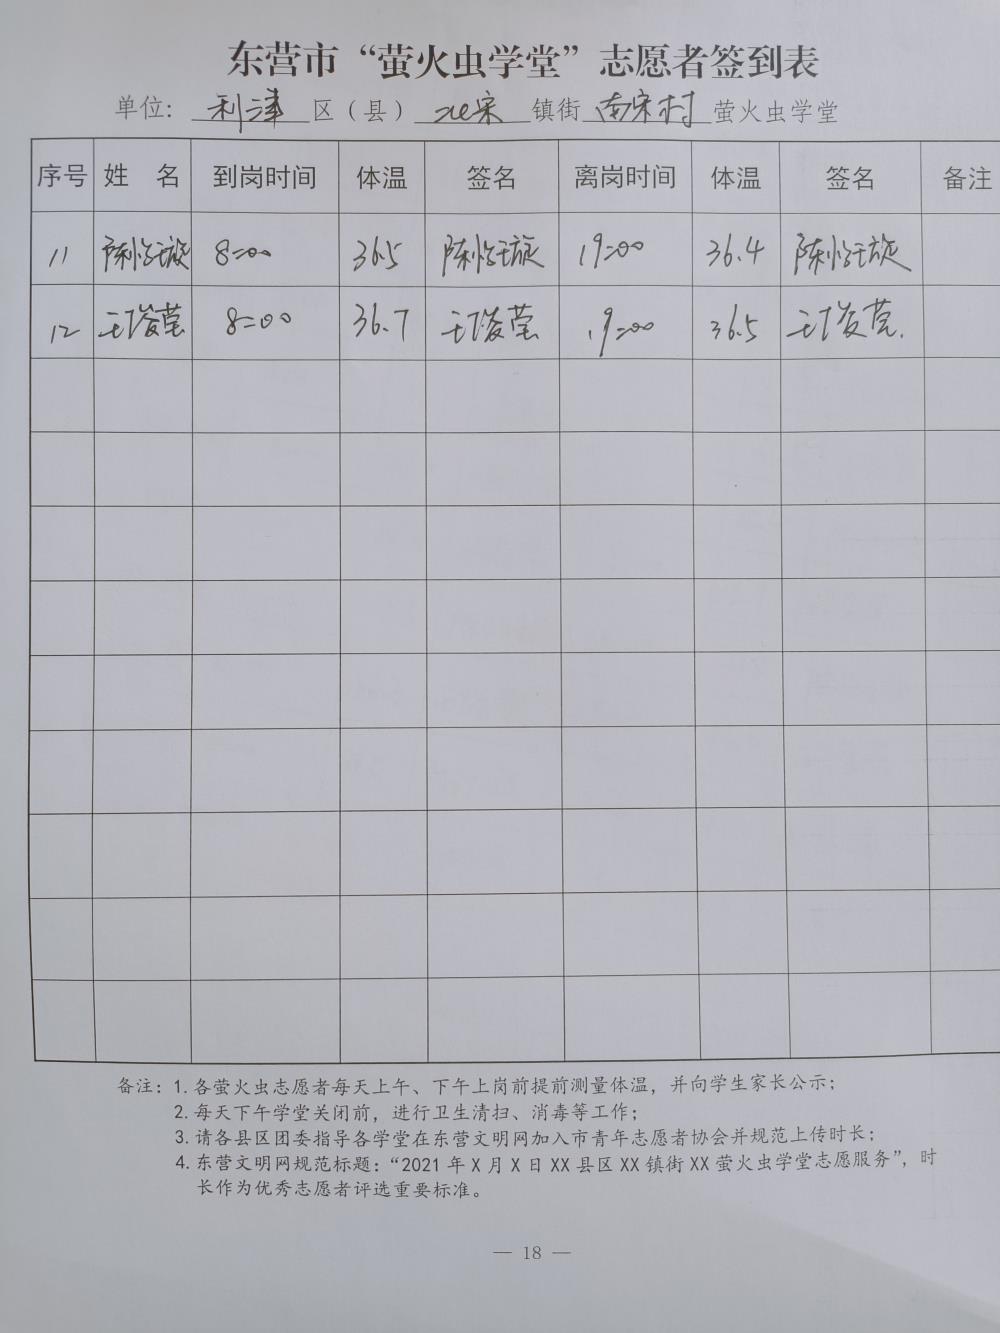 东营市“萤火虫学堂”志愿者签到表
单位：利津区（县）北宋镇街南宋村萤火虫学堂
序号 姓 名 到岗时间 体温 签名 离岗时间 体温 签名 备注
11 陈怡璇 8:00 36.5 陈怡璇 19:00 36.4 陈怡璇
12 王俊莹 8:00 36.7 王俊莹 19:00 36.5 王俊莹
备注：1. 各萤火虫志愿者每天上午、下午上岗前提前测量体温，并向学生家长公示；
2. 每天下午学堂关闭前，进行卫生清扫、消毒等工作；
3. 请各县区团委指导各学堂在东营文明网加入市青年志愿者协会并规范上传时长；
4. 东营文明网规范标题：“2021 年 X 月 X 日 XX 县区 XX 镇街 XX 萤火虫学堂志愿服务”，时
长作为优秀志愿者评选重要标准。
— 18 —